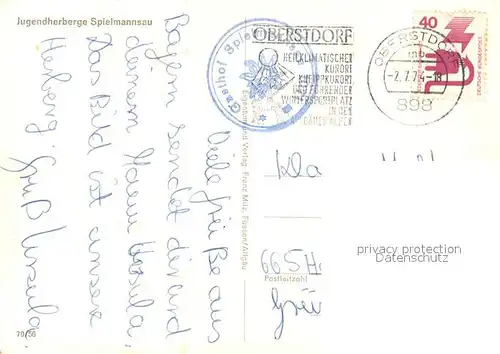 Jugendherberge Spielmannsau
Viele Grüße aus
Bayern sendet dir und
deinem Mann Ursula.
Das Bild ist unsere
Herberg. Gruß Ursula
70/56
Eigentum und Verlag: Franz Milz, Füssen/Allgäu
Gasthof
OBERSTDORF
HEILKLIMATISCHER
KURORT
KNEIPPKURORT
UND FÜHRENDER
WINTERSPORTPLATZ
IN DEN
ALLGÄUER ALPEN
OBERSTDORF
-2.7.74-18
898
40
DEUTSCHE BUNDESPOST
665
Postleitzahl
privacy protection
Datenschutz